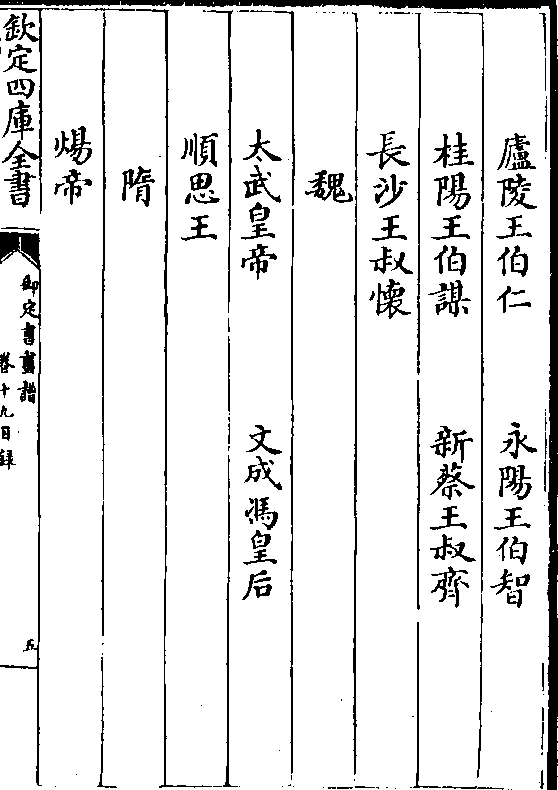 廬陵王伯仁 永陽王伯智
桂陽王伯謀 新蔡王叔齊
長沙王叔懷
魏
太武皇帝 文成馮皇后
順思王
隋
煬帝
欽定四庫全書
御定書畫譜
卷十九目録
五